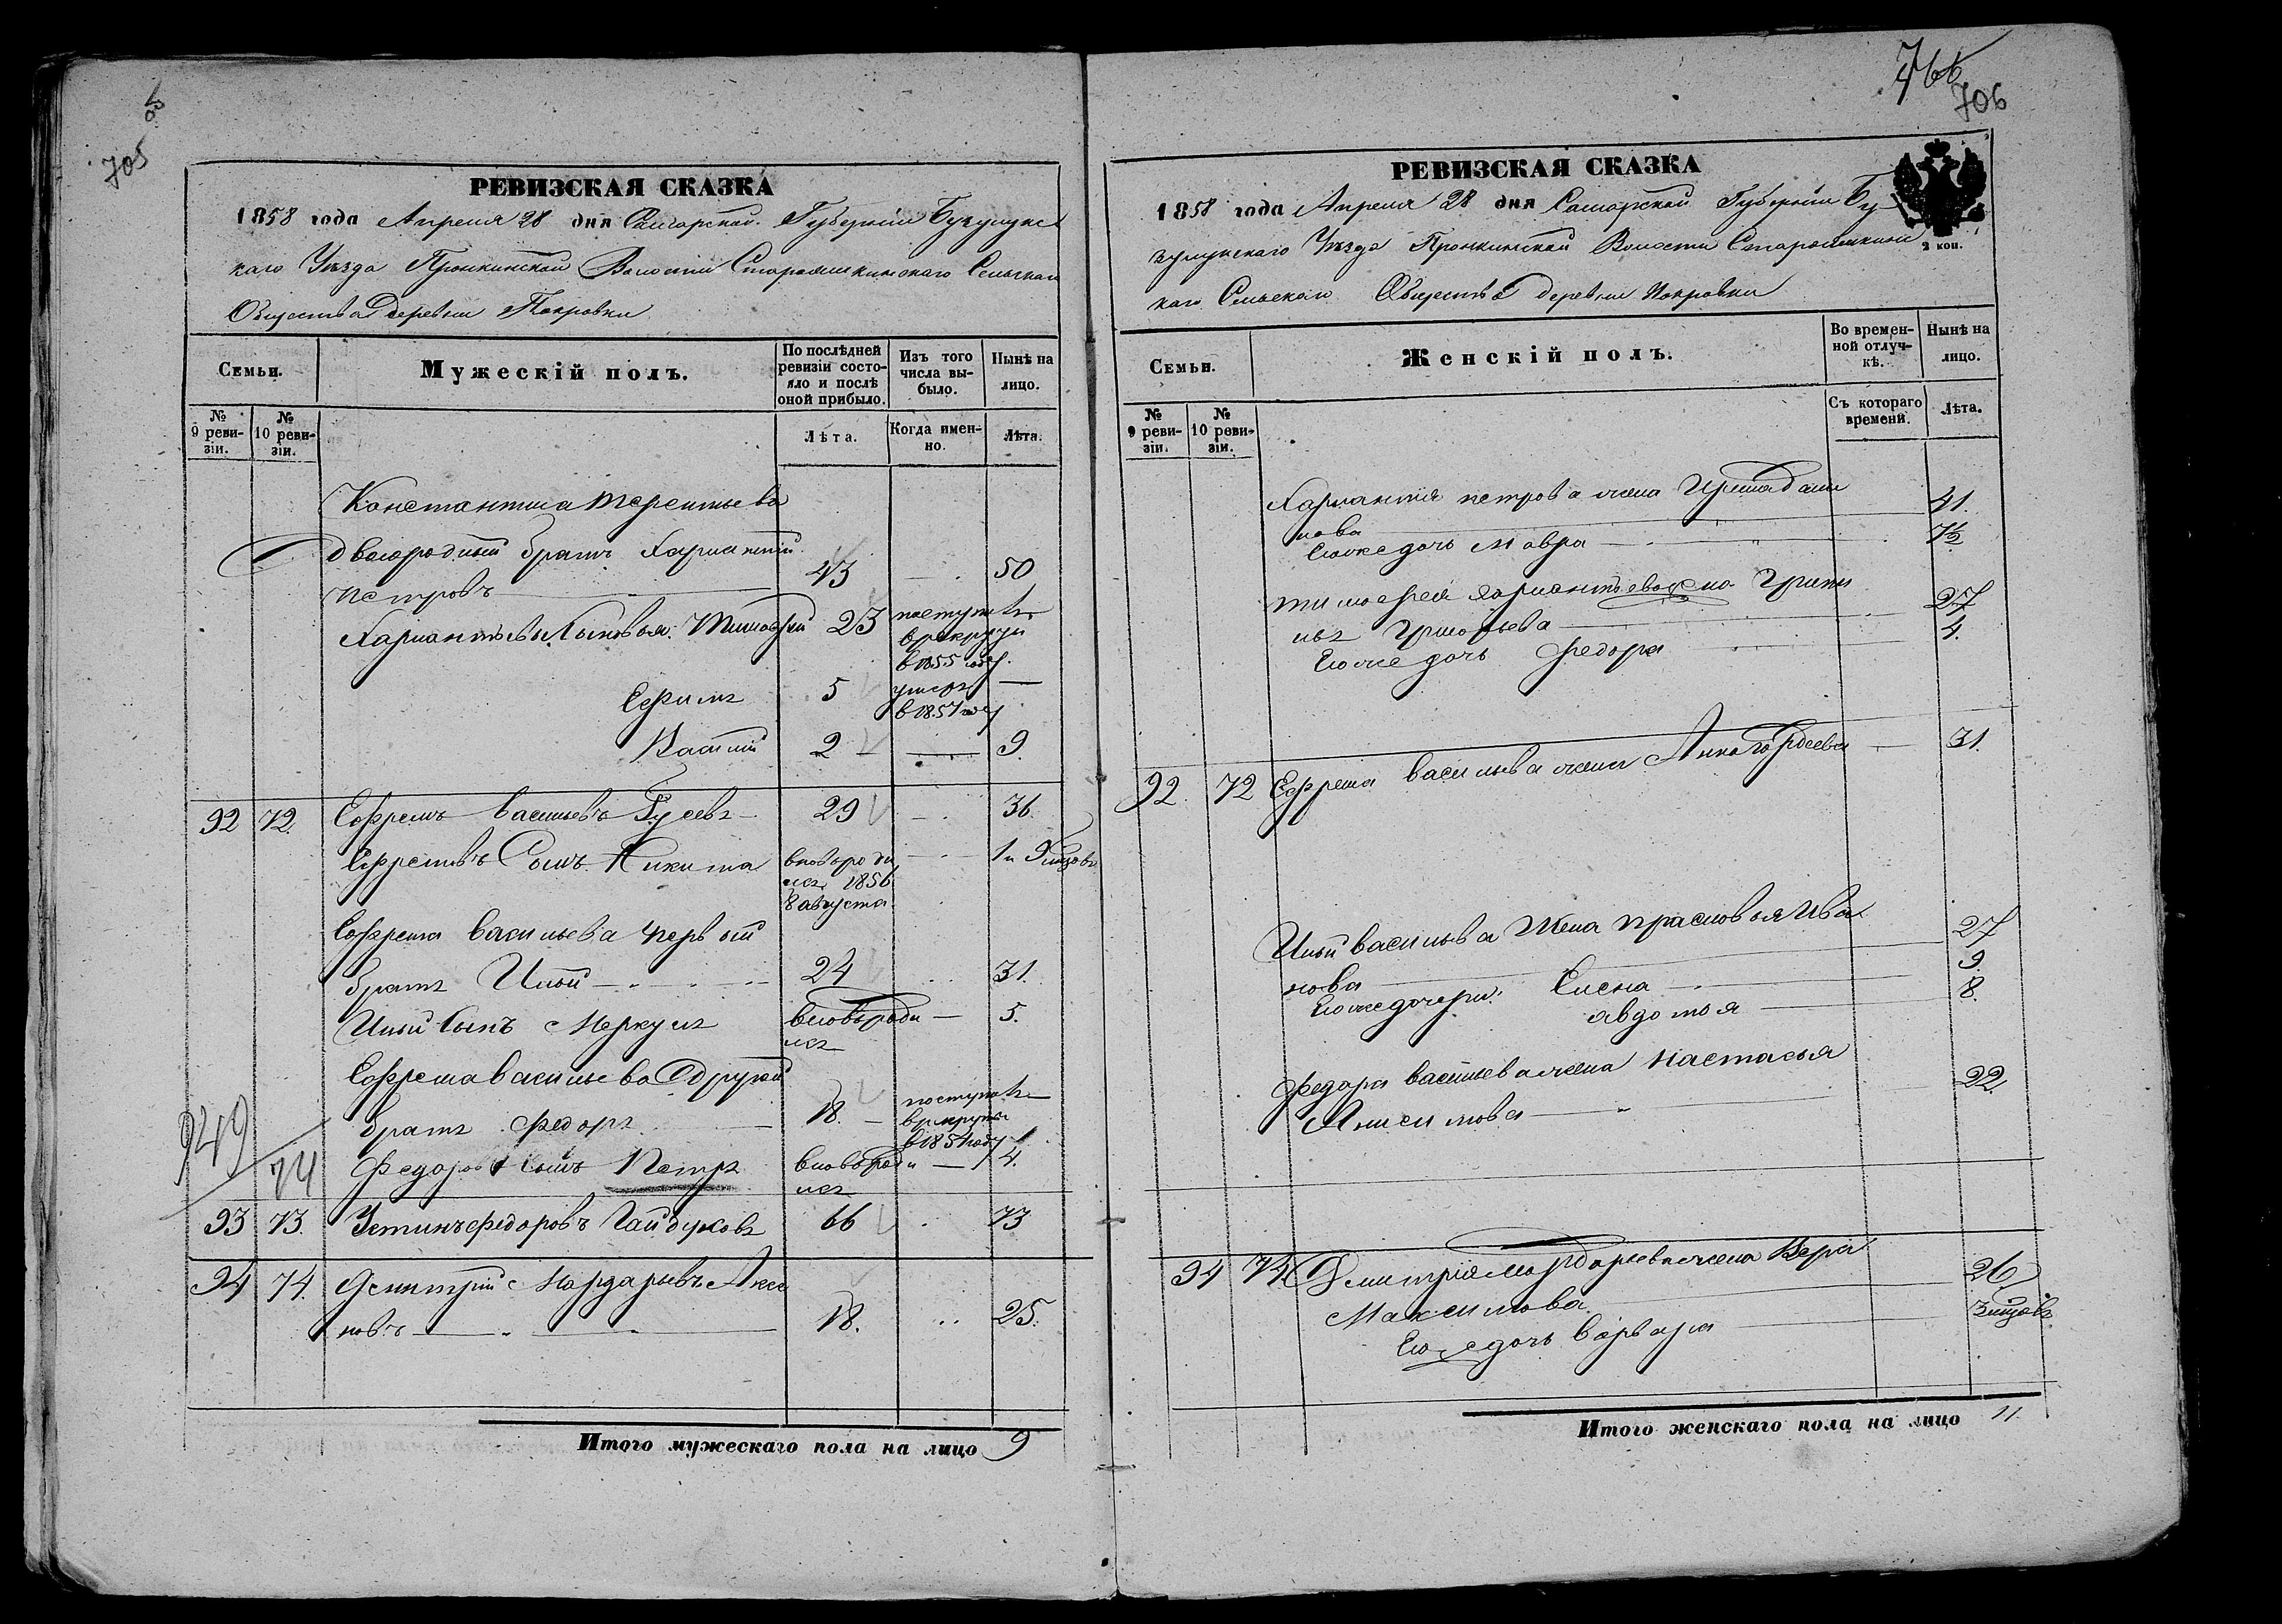 705
РЕВИЗСКАЯ СКАЗКА
1858 года Апреля 28 дня Самарской Губерніи Бузулукс
каго Уѣзда Пронкинской Волости Староашкинскаго Сельскаго
Общества Деревни Покровки
Семьи.
Мужескій полъ.
По послѣдней
ревизіи состо-
яло и послѣ
оной прибыло.
Изъ того
числа вы-
было.
Нынѣ на
лицо.
№
9 реви-
зіи.
№
10 реви-
зіи.
Лѣта.
Когда имен-
но.
Лѣта.
Константина Терентьева
двоюродный братъ Харлантій
Петровъ 43 50
Харлантьевы Сыновья: Тимофей 23 поступилъ
в рекруты
в 1855 году.
Ефимъ 5 умеръ —
в 1857 году
2 — 9.
92 72. Ефремъ Васильевъ Гусевъ 29 36.
Ефремовъ Сынъ Никита вновьроди 1 и 9 мѣсцовъ
лся 1856
8 августа
Ефрема Васильева первый
братъ 24 31.
Сынъ Меркулъ вновьроди — 5.
лся
Ефрема Васильева Другой
братъ Федоръ 18. — поступилъ
в рекруты
в 1854 году
949
74 Федоровъ Сынъ Петръ вновьроди — 4.
лся
93 73. Устинъ Федоровъ Гайдуковъ 66 73
94 74. Демитрій Мардарьевъ Аксе
новъ 18. 25.
Итого мужескаго пола на лицо 9
706
РЕВИЗСКАЯ СКАЗКА
1858 года Апреля 28 дня Самарской Губерніи Бу
зулукскаго Уѣзда Пронкинской Волости Староашкинс
каго Сельскаго Общества деревни Покровки
2 коп.
Семьи.
Женскій полъ.
Во времен-
ной отлуч-
кѣ.
Нынѣ на
лицо.
№
9 реви-
зіи.
№
10 реви-
зіи.
Съ котораго
времени.
Лѣта.
Харлантія Петрова жена 41.
нова
Еюже дочь Мавра 7½
Тимофея Харлантьева жена 27
Григорьева
Еюже дочь Федора 4.
92. 72 Ефрема Васильева жена Анна Гордеева 31.
Васильева Жена Прасковья Ива 27
нова
Еюже дочери: Елена 9.
Авдотья 8.
Федора Васильева жена Настасья
Анисимова 22.
94 74. Дмитрія Мардарьева жена Вера
Максимова 26
Еюже дочь Варвара 3 мѣсцовъ
Итого женскаго пола на лицо 11.